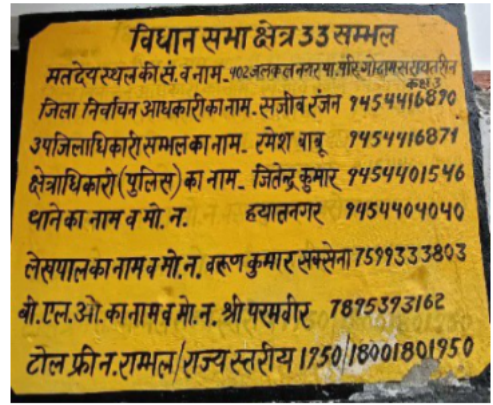 विधान सभा क्षेत्र 33 सम्भल
मतदेय स्थल की सं. व नाम- 402 जलकल नगर पा. परि. गोदाम सरायतरीन
कक्ष 3
जिला निर्वाचन अधिकारी का नाम- संजीव रंजन 9454416890
उपजिलाधिकारी सम्भल का नाम- रमेश बाबू 9454416879
क्षेत्राधिकारी (पुलिस) का नाम- जितेन्द्र कुमार 9454401546
थाने का नाम व मो. न. हयातनगर 9454404040
लेखपाल का नाम व मो. न. वरूण कुमार सक्सेना 7599333803
बी.एल.ओ. का नाम व मो. न. श्री परमवीर 7895393162
टोल फ्री न. सम्भल/राज्य स्तरीय 1950/18001801950